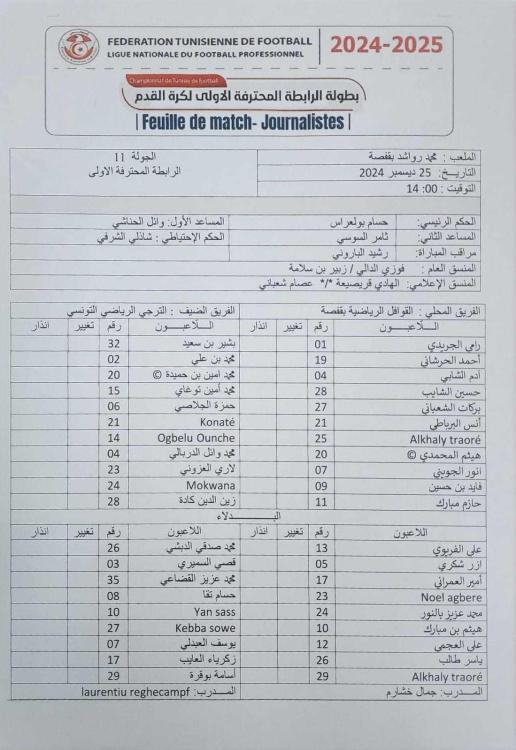 FEDERATION TUNISIENNE DE FOOTBALL
LIGUE NATIONALE DU FOOTBALL PROFESSIONNEL
2024-2025
Championnat de Tunisie de football
بطولة الرابطة المحترفة الأولى لكرة القدم
Feuille de match- Journalistes
الملعب : محمد رواشد بقفصة الجولة 11
التاريخ: 25 ديسمبر 2024 الرابطة المحترفة الاولى
التوقيت : 00: 14
الحكم الرئيسي: حسام بولعراس المساعد الأول: وائل الحناشي
المساعد الثاني: ثامر السوسي الحكم الإحتياطي : شاذلي الشرفي
مراقب المباراة: رشيد الباروني
المنسق العام : فوزي الدالي / زبير بن سلامة
المنسق الإعلامي: الهادي قريصيعة */* عصام شعباني
الفريق المحلي : القوافل الرياضية بقفصة الفريق الضيف : الترجي الرياضي التونسي
اللاعبون رقم تغيير انذار اللاعبون رقم تغيير انذار
رامي الجريدي 01 بشير بن سعيد 32
أحمد الحرشاني 19 محمد بن علي 02
آدم الشابي 04 محمد امين بن حميدة © 20
حسين الشايب 28 محمد أمين توغاي 15
بركات الشعباني 27 حمزة الجلاصي 06
أنس البرباطي 21 Konaté 21
Alkhaly traoré 25 Ogbelu Ounche 14
هيثم المحمدي © 20 محمد وائل الدربالي 04
انور الجويني 07 لاري العزوني 23
فايد بن حسين 09 Mokwana 24
حازم مبارك 11 زين الدين كادة 28
البدلاء
اللاعبون رقم تغيير انذار اللاعبون رقم تغيير انذار
علي الفريوي 13 محمد صدقي الدبشي 26
ازر شكري 05 قصي السميري 03
أمير العمراني 17 محمد عزيز القضاعي 35
Noel agbere 23 حسام تقا 08
محمد عزيز بالنور 24 Yan sass 10
هيثم بن مبارك 10 Kebba sowe 27
علي العجمي 12 يوسف العبدلي 07
ياسر طالب 26 زكرياء العايب 17
Alkhaly traoré 29 أسامة بوقرة 29
المدرب: جمال خشارم المدرب: laurentiu reghecampf